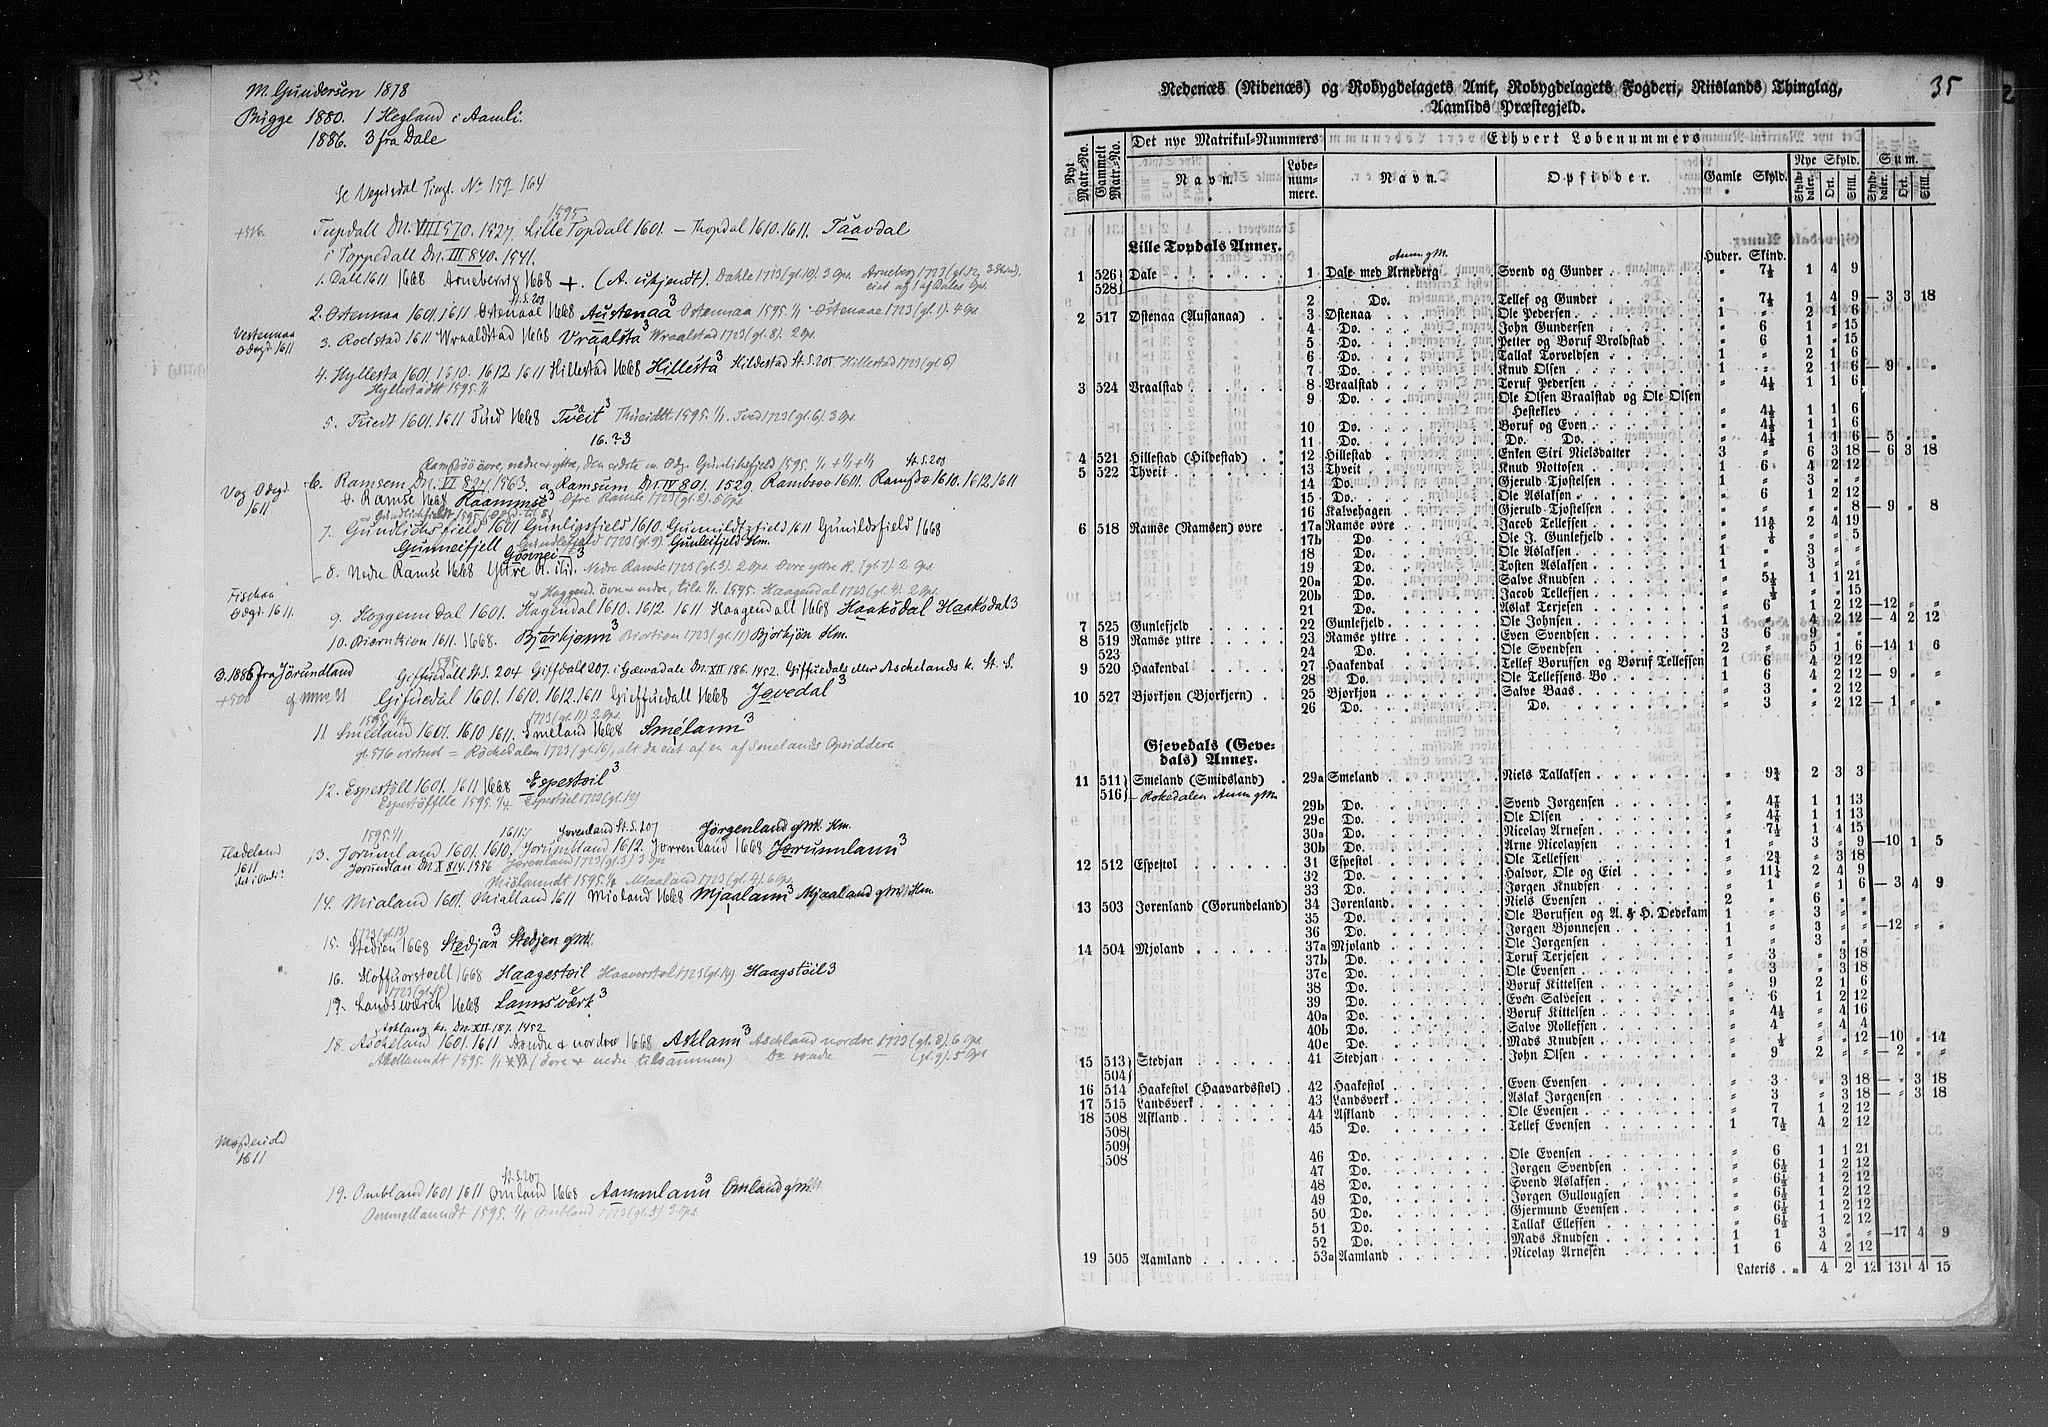 M. Gundersen 1878
Brigge 1880. 1 Hegland i Aamli.
1886. 3 fra Dale
se Vegusdal Tingl. No 159 164
1595
Tupdall Dn. VIII 570. 1527. Lille Topdall 1601. — Thopdal 1610. 1611. Taavdal
i Toppedall Dn. III 840. 1541.
1. Dall 1611 1668 Arneberrig 1668 + (A. ukjendt). Dahle 1723 (gl. 10). 3 Ops. Arneberg 1723 (gl. 12
eiet af 1 af Dales Ops.
St. S. 203
2. Østennaa 1601. 1611 Østenaae 1668 Austenaa3 Ostennaa 1595 1/1 Østenaae 1723 (gl. 1). 4 Ops
Vestennaa
Ødegd. 1611
3. Roelstad 1611 Wraaldstad 1668 Vraalsta3 Wraalstad 1723 (gl. 8). 2 Ops.
4. Hyllesta 1601. 1610. 1612 1611 Hillestad 1668 Hillesta3 Hildestad St. S. 205 Hillestad 1723 (gl. 6)
Hyllestadt 1595. 1/1
5. Tuedt 1601. 1611 Tued 1668 Tveit3 Thueidtt 1595. 1/1. Tved 1723 (gl. 6). 3 Ops
16. 23
St. S. 203
Vog Ødegd.
1611
6. Ramsem Dn. VI 827. 1563. a Ramsum Dn. IV 801. 1529. Ramboo 1611. Ramsdo 1610. 1612. 1611
Ø. Ramse 1668 Raammse3 Øfre Ramse 1723 (gl. 2). 5 Ops.
7. Gundlichsfield 1601 Gunligsfield 1610. Gunnildtzfield 1611 Gunildsfield 1668
Gunneifjell 1723 (gl. 9). Gunleifjeld Hm.
8. Nedre Ramse 1668 Yttre R. ibid. Nedre Ramse 1723 (gl. 3). 2 Ops. Øvre yttre R. (gl. 7). 2 Ops
Haagendal 1723 (gl. 4). 2 Ops.
Fischaa
Ødegd. 1611.
9. Hoggenndal 1601. Hagendal 1610. 1612. 1611 Haagendall 1668 Haaksdal Haaksdal3
10. Biorntkion 1611. 1668. Bjørkjønn3 Biortion 1723 (gl. 11) Bjorkjøn Hm.
3. 1886 fra Jørundland
Giffuedall St. S. 204 Giffdall 207. i Gæwadale Dn. XII 186. 1452. Giffuedals eller Aschelands k. St. S.
+500
Gifuedal 1601. 1610. 1612. 1611 Gieffuedall 1668 Jevedal3
1595. 1/2 1723 (gl. 11) 2 Ops.
11 Smeeland 1607. 1610 1611 Smeland 1668 Smélann3
gl. 516 = Røchedalen 1723 (gl. 16), alt da eiet af en af Smelands Opsiddere
12. Espestøll 1601. 1611 1668 Espestøil3
Espestøffle 1595. 1/4 Espestøel 1723 (gl. 12)
1595. 1/1 1611: Jorenland St. S. 207 Jørgenland gMtr. Hm.
Fladeland
1611
13. Jorumland 1601. 1610. Jorumbland 1612. Jorrenland 1668 Jørunnlann3
Jorundlan Dn. X 814. 1556 Jørenland 1723 (gl. 3) 3 Ops
Miölanndt 1595. 1/2 Miaaland 1723 (gl. 4). 6 Ops.
14. Mialand 1601. Mialland 1611 Mioland 1668 Mjaalann3 Mjaaland gMtr. Hm.
1723 (gl. 13)
15. Stedien 1668 Stedjan3 Stedjen gMtr.
16. Hoffuorstoell 1668 Haagestøil Haaverstøl 1723 (gl. 14) Haagstöil3
1723 (gl. 15)
17. Landswærch 1668 Lannsværk3
Asklang k. Dn. XII. 187. 1452
18. Ascheland 1601. 1611 søndre & nordre 1668 Asklann3 Aschland nordre 1723 (gl. 8). 6 Ops.
Askellanndt 1595. 1/1 (øvre & nedre tilsammen) Do søndre (gl. 9). 5 Ops
1611
St. S. 207
19. Ombland 1601 1611 Omland 1668 Aammlann3 Omland gMtr.
Ommellanndt 1595. 1/1 Ombland 1723 (gl. 5) 3 Ops.
35
Nedenæs (Nidenæs) og Robygdelagets Amt, Robygdelagets Fogderi, Riislands Thinglag,
Aamlids Præstegjeld.
Nyt Matr.-No. Gammelt Matr.-No. Det nye Matrikul-Nummers Ethvert Løbenummers
Navn. Løbe-nummere. Navn. Opsidder. Gamle Skyld. Nye Skyld. Sum.
Skylddaler. Ort. Skill. Skylddaler. Ort. Skill.
Lille Topdals Annex. Huder. Skind.
1 526 Dale 1 Dale med Arneberg Svend og Gunder " 7½ 1 4 9
528 2 Do. Tellef og Gunder " 7½ 1 4 9 — 3 3 18
2 517 Østenaa (Austanaa) 3 Østenaa Ole Pedersen 1 " 2 1 6
4 Do. John Gundersen " 6 1 " 15
5 Do. Petter og Boruf Vroldstad " 6 1 " 15
6 Do. Tallak Torveldsen 1 " 2 1 6
7 Do. Knud Olsen 1 " 2 1 6 — 9 " "
3 524 Vraalstad 8 Vraalstad Toruf Pedersen " 4½ 1 1 6
9 Do. Ole Olsen Vraalstad og Ole Olsen
Hesteklev " 4½ 1 1 6
10 Do. Boruf og Even " 4½ 1 1 6
11 Do. Do. Do. " 4½ 1 1 6 — 5 " "
4 521 Hillestad (Hildestad) 12 Hillestad Enken Siri Nielsdatter 3 " 6 3 18 — 6 3 18
5 522 Thveit 13 Thveit Knud Nottosen 1 6 4 2 12
14 Do. Gjeruld Tjostelsen 1 " 3 " "
15 Do. Ole Aslaksen " 6 1 2 12
16 Kalvehagen Gjeruld Tjostelsen " " " " 8 — 9 " 8
6 518 Ramse (Ramsen) øvre 17a Ramse øvre Jacob Tellefsen " 11⅚ 2 4 19
17b Do. Ole J. Gunlefjeld " ⅙ " " 5
18 Do. Ole Aslaksen 1 " 3 " "
19 Do. Tosten Aslaksen 1 " 3 " "
20a Do. Salve Knudsen " 5½ 1 1 21
20b Do. Jacob Tellefsen " " " " 15
21 Do. Aslak Terjesen " 6 1 2 12 — 12 " "
7 525 Gunlefjeld 22 Gunlefjeld Ole Johnsen 1 " 4 2 12 — 4 2 12
8 519 Ramse yttre 23 Ramse yttre Even Svendsen 3 6 9 " "
523 24 Do. Ole Svendsen 2 " 5 1 6 — 14 1 6
9 520 Haakendal 27 Haakendal Tellef Borufsen og Boruf Tellefsen 1 6 4 2 12
28 Do. Ole Tellefsens Bo 1 6 4 2 12 — 9 " "
10 527 Bjorkjøn (Bjorkjern) 25 Bjorkjøn Salve Baas " 3 " 2 12
26 Do. Do. " 3 " 2 12 — 1 " "
Gjevedals (Geve-
dals) Annex.
11 511 Smeland (Smidsland) 29a Smeland Niels Tallaksen " 9¾ 2 3 3
516 — Røkedalen Anm gM. 29b Do. Svend Jørgensen " 4⅞ 1 1 13
29c Do. Ole Olsen " 4⅞ 1 1 13
30a Do. Nicolay Arnesen " 7½ 1 4 15
30b Do. Arne Nicolaysen 1 " 3 " 9 — 10 1 5
12 512 Espestøl 31 Espestøl Ole Tellefsen " 2¾ " 3 18
32 Do. Halvor, Ole og Eiel " 11¼ 2 4 9
33 Do. Jørgen Knudsen " 1 " 1 6 — 3 4 9
13 503 Jørenland (Gorundeland) 34 Jørenland Niels Evensen 2 " 6 " "
35 Do. Ole Borufsen og A. & H. Dedekam 1 " 3 " "
36 Do. Jørgen Bjønnesen 1 " 3 " " — 12 " "
14 504 Mjøland 37a Mjøland Ole Jørgensen 1 " 3 " "
37b Do. Toruf Terjesen " 3 " 3 18
37c Do. Ole Evensen " 3 " 3 18
38 Do. Boruf Kittelsen " 9 2 1 6
39 Do. Even Salvesen " 6 1 2 12
40a Do. Boruf Kittelsen " 4½ " 4 16
40b Do. Salve Rollefsen " 4 " 4 4
40c Do. Mads Knudsen " ½ " " 12 — 10 " 14
15 513 Stedjan 41 Stedjan John Olsen " 9 2 " " — 2 " "
504
16 514 Haakestøl (Haavardsstøl) 42 Haakestøl Even Evensen " 3 " 3 18 — " 3 18
17 515 Landsverk 43 Landsverk Aslak Jørgensen " 3 " 3 18 — " 3 18
18 508 Askland 44 Askland Ole Evensen " 7 1 2 12
508 45 Do. Tellef Evensen 1 7½ 4 2 12
509
508 46 Do. Ole Evensen " 6 1 1 21
47 Do. Jørgen Svendsen " 6½ 1 2 12
48 Do. Svend Aslaksen " 6½ 1 2 12
49 Do. Jørgen Gullougsen " 6½ 1 2 12
50 Do. Gjermund Evensen " 6½ 1 2 12
51 Do. Tallak Ellefsen " 6½ 1 2 12
52 Do. Mads Knudsen 1 1 3 " " — 17 4 9
19 505 Aamland 53a Aamland Nicolay Arnesen 1 6 4 2 12
Lateris " 4 2 12 131 4 15